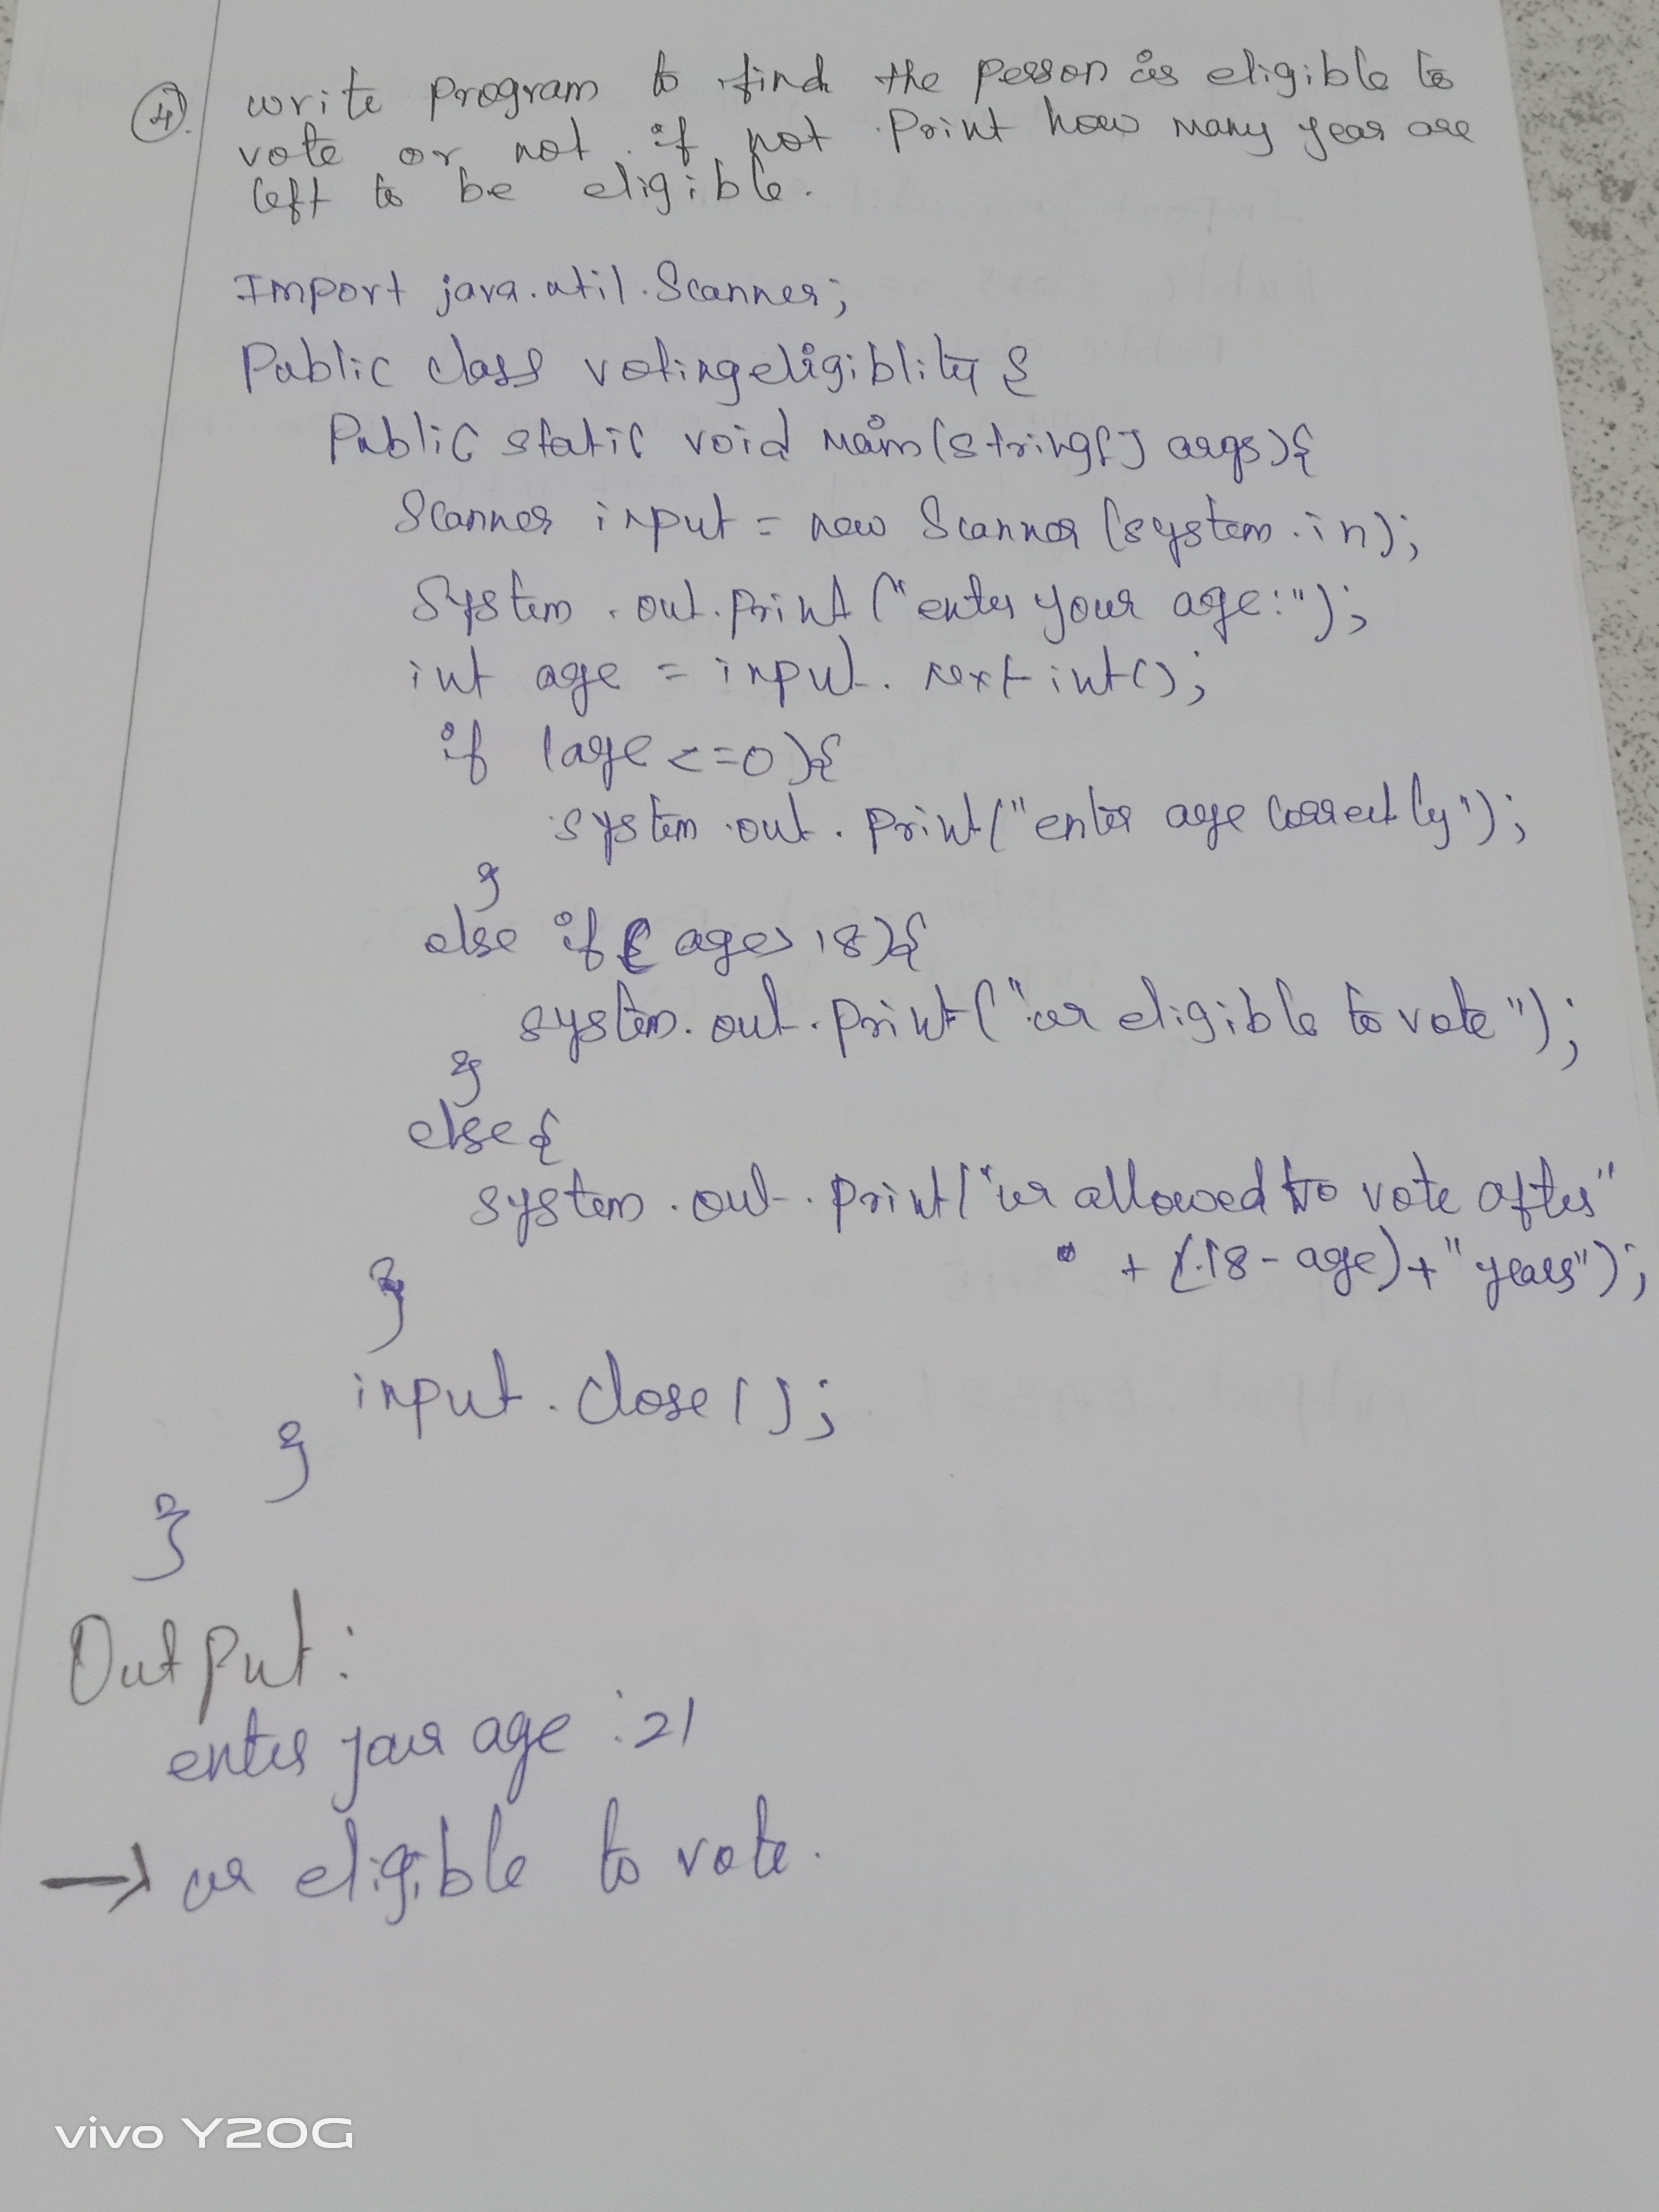 4.
write program to find the person is eligible to
vote or not. if not print how many year are
left to be eligible.
Import java.util.Scanner;
Public class votingeligiblity {
Public static void main(string[] args){
Scanner input = new Scanner (system.in);
System.out.print ("enter your age:");
int age = input.next int();
if (age <=0){
system.out.print("enter age correctly");
}
else if( age> 18){
system.out.print("ur eligible to vote");
}
else{
system.out.print("ur allowed to vote after"
+ (18-age)+"years");
}
input.close();
}
}
Output:
enter your age :21
→ ur eligible to vote.
vivo Y20G